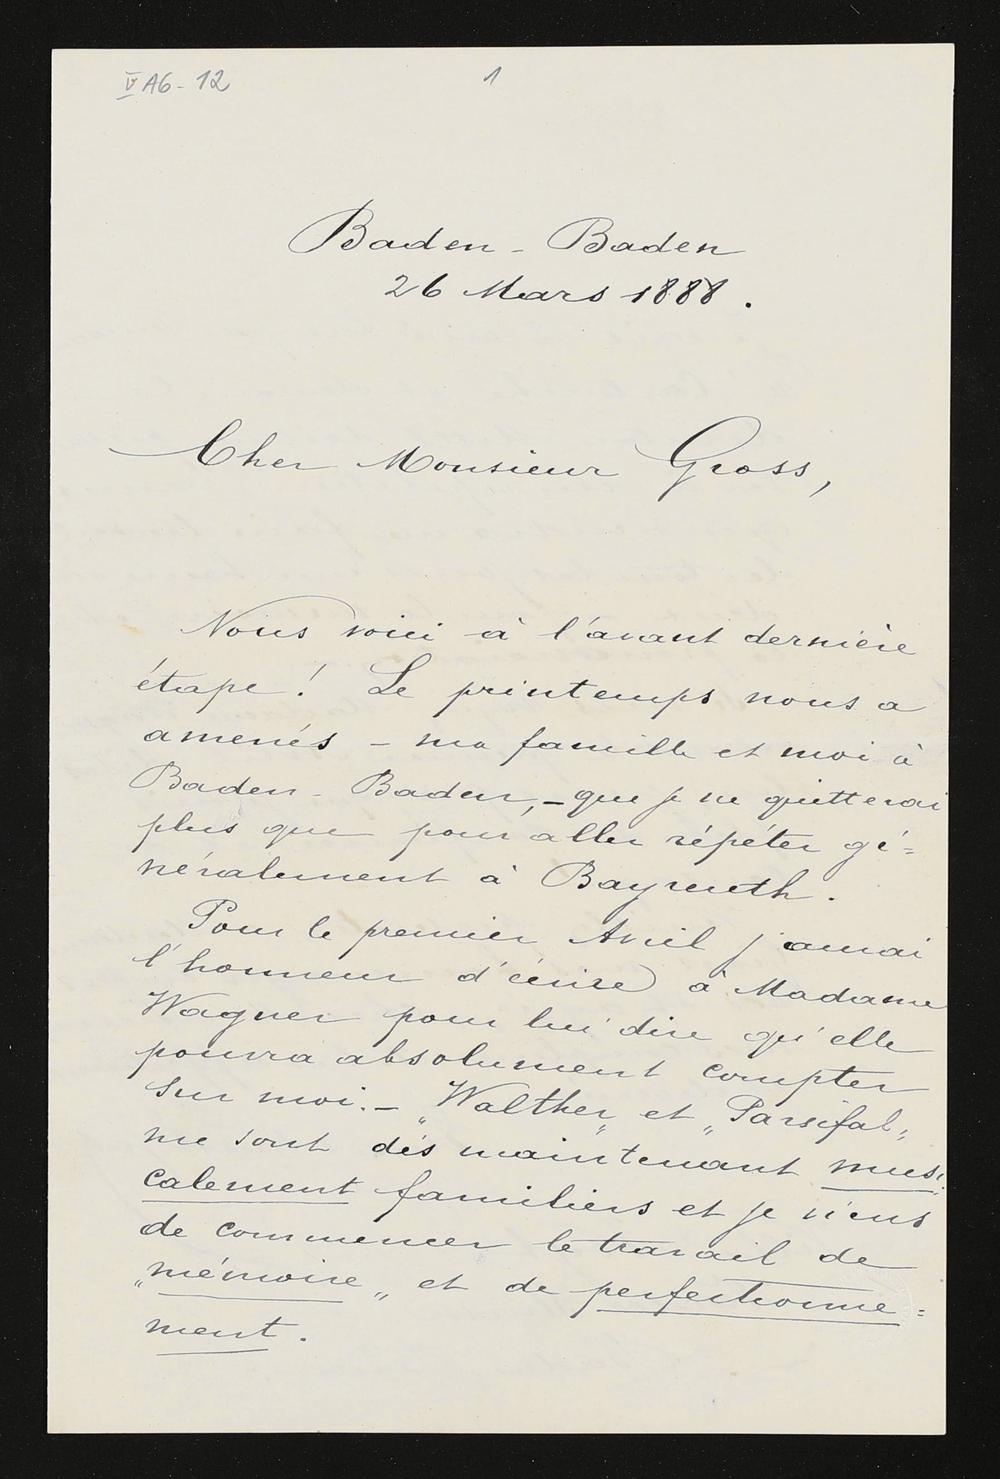 V A6-12
1
Baden-Baden
26 Mars 1888.
Cher Monsieur Gross,
Nous voici à l'avant dernière
étape! Le printemps nous a
amenés - ma famille et moi à
Baden-Baden, - que je ne quitterai
plus que pour aller répéter gé=
néralement à Bayreuth.
Pour le premier Avril j'aurai
l'honneur d'écrire à Madame
Wagner pour lui dire qu'elle
pourra absolument compter
sur moi. - „Walther„ et „Parsifal„
me sont dés maintenant musi
calement familiers et je viens
de commencer le travail de
„mémoire„ et de perfectionne=
ment.